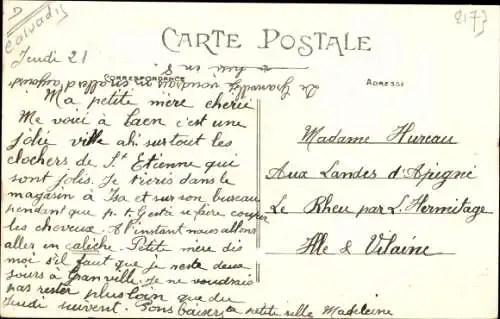 D
Calvados
2173
CARTE POSTALE
CORRESPONDANCE
ADRESSE
Jeudi 21
Ma petite mère chérie
Me voici à Caen c'est une
jolie ville ah surtout les
clochers de St Etienne qui
sont jolis. Je t'écris dans le
magasin à Isa et sur son bureau
pendant que p. t. G est à se faire couper
les cheveux. A l'instant nous allons
aller en calèche. Petite mère dis
moi s'il faut que je reste deux
jours à Granville. Je ne voudrais
pas rester plus loin que du
Jeudi suivant. Bons baisers ta petite fille Madeleine
Madame Hureau
Aux Landes d'Apigné
Le Rheu par L'Hermitage
Ille & Vilaine